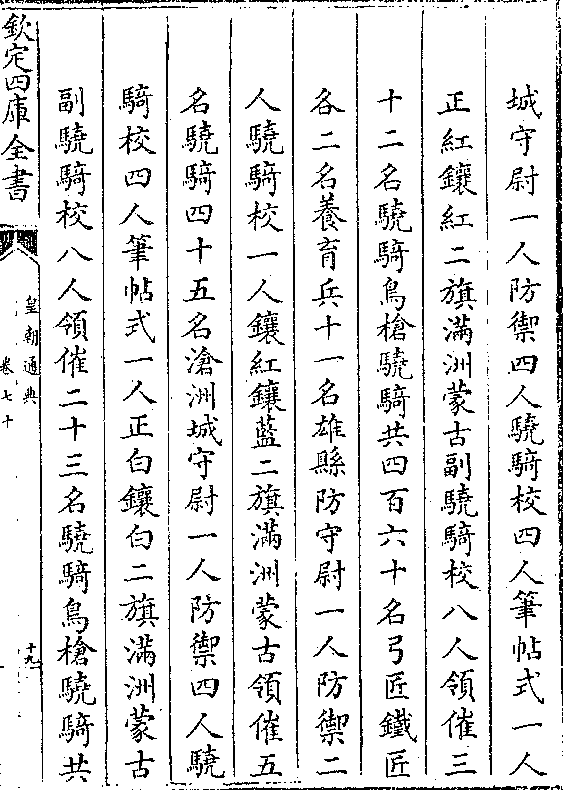 城守尉一人防禦四人驍騎校四人筆帖式一人
正紅鑲紅二旗滿洲蒙古副驍騎校八人領催三
十二名驍騎鳥槍驍騎共四百六十名弓匠鐵匠
各二名養育兵十一名雄縣防守尉一人防禦二
人驍騎校一人鑲紅鑲藍二旗滿洲蒙古領催五
名驍騎四十五名滄洲城守尉一人防禦四人驍
騎校四人筆帖式一人正白鑲白二旗滿洲蒙古
副驍騎校八人領催二十三名驍騎鳥槍驍騎共
欽定四庫全書
皇朝通典
卷七十
十九